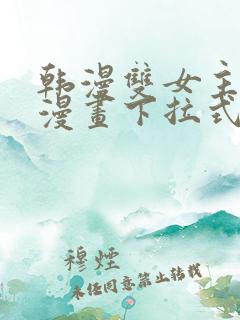 韩漫雙女主
漫畫下拉式
穆煙
未经同意禁止转载